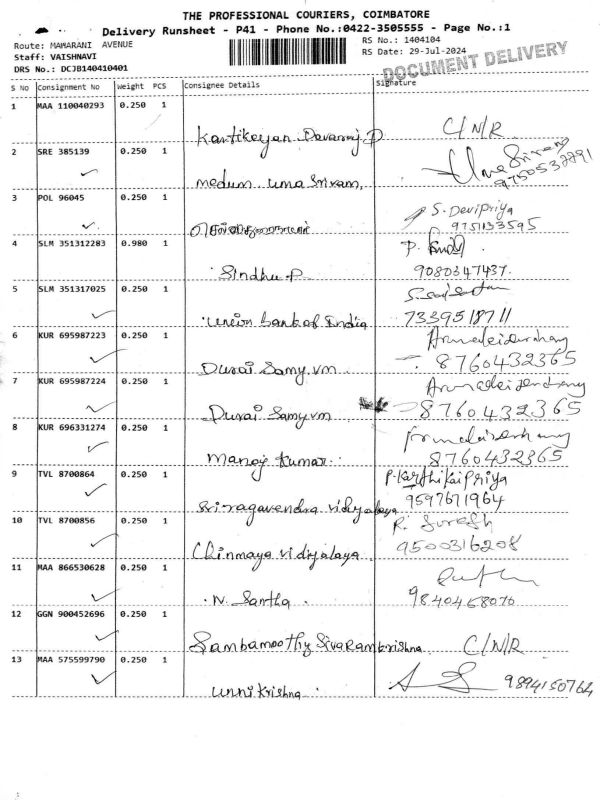 THE PROFESSIONAL COURIERS, COIMBATORE
Delivery Runsheet - P41 - Phone No.:0422-3505555 - Page No.:1
Route: MAMARANI AVENUE
RS No.: 1404104
Staff: VAISHNAVI
RS Date: 29-Jul-2024
DRS No.: DCJB140410401
DOCUMENT DELIVERY
S No Consignment No Weight PCS Consignee Details Signature
1 MAA 110040293 0.250 1
Kartikeyan Devaraj P C/N/R
2 SRE 385139 0.250 1
medum uma sriram, Uma Sriram
9750532291
3 POL 96045 0.250 1
S. Devipriya
9751133595
4 SLM 351312283 0.980 1
Sindhu P 9080347437.
5 SLM 351317025 0.250 1
union bank of India 7339518711
6 KUR 695987223 0.250 1
Durai Samy.vm 8760432365
7 KUR 695987224 0.250 1
Durai Samy.vm 8760432365
8 KUR 696331274 0.250 1
Manoj Kumar 8760432365
9 TVL 8700864 0.250 1
P. Karthikaipriya
Sri ragavendra vidyalaya 9597671964
10 TVL 8700856 0.250 1
R. Suresh
Chinmaya vidyalaya 9500316208
11 MAA 866530628 0.250 1
N. Santha 9840468070
12 GGN 900452696 0.250 1
Sambamoothy Sivaramkrishna C/N/R
13 MAA 575599790 0.250 1
unni krishna 9894150764